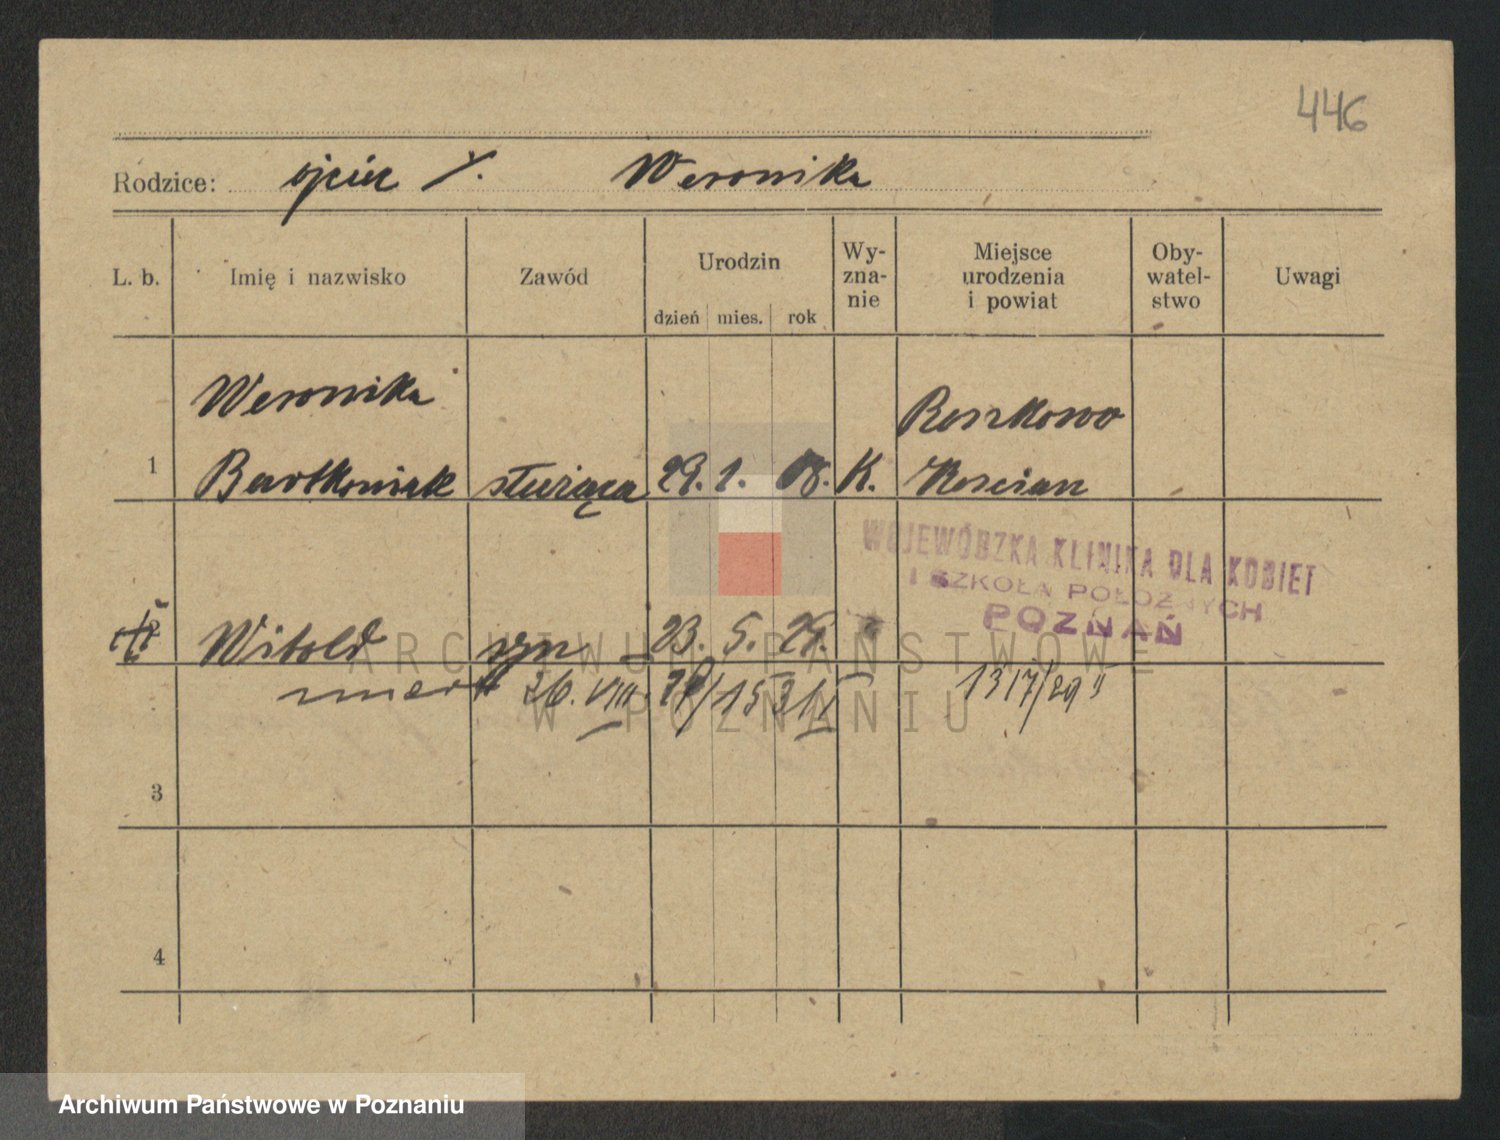 446
Rodzice: ojciec /. Weronika
L. b. Imię i nazwisko Zawód Urodzin dzień mies. rok Wy-zna-nie Miejsce urodzenia i powiat Oby-watel-stwo Uwagi
Weronika Roszkowo
1 Bartkowiak służąca 29. 1. 08. K. Kościan
WOJEWÓDZKA KLINIKA DLA KOBIET
I SZKOŁA POŁOŻNYCH
POZNAŃ
Witold syn 23. 5. 29.
ARCHIWUM PAŃSTWOWE
zmarł 26. VIII. 1317/29 II
W POZNANIU
3
4
Archiwum Państwowe w Poznaniu